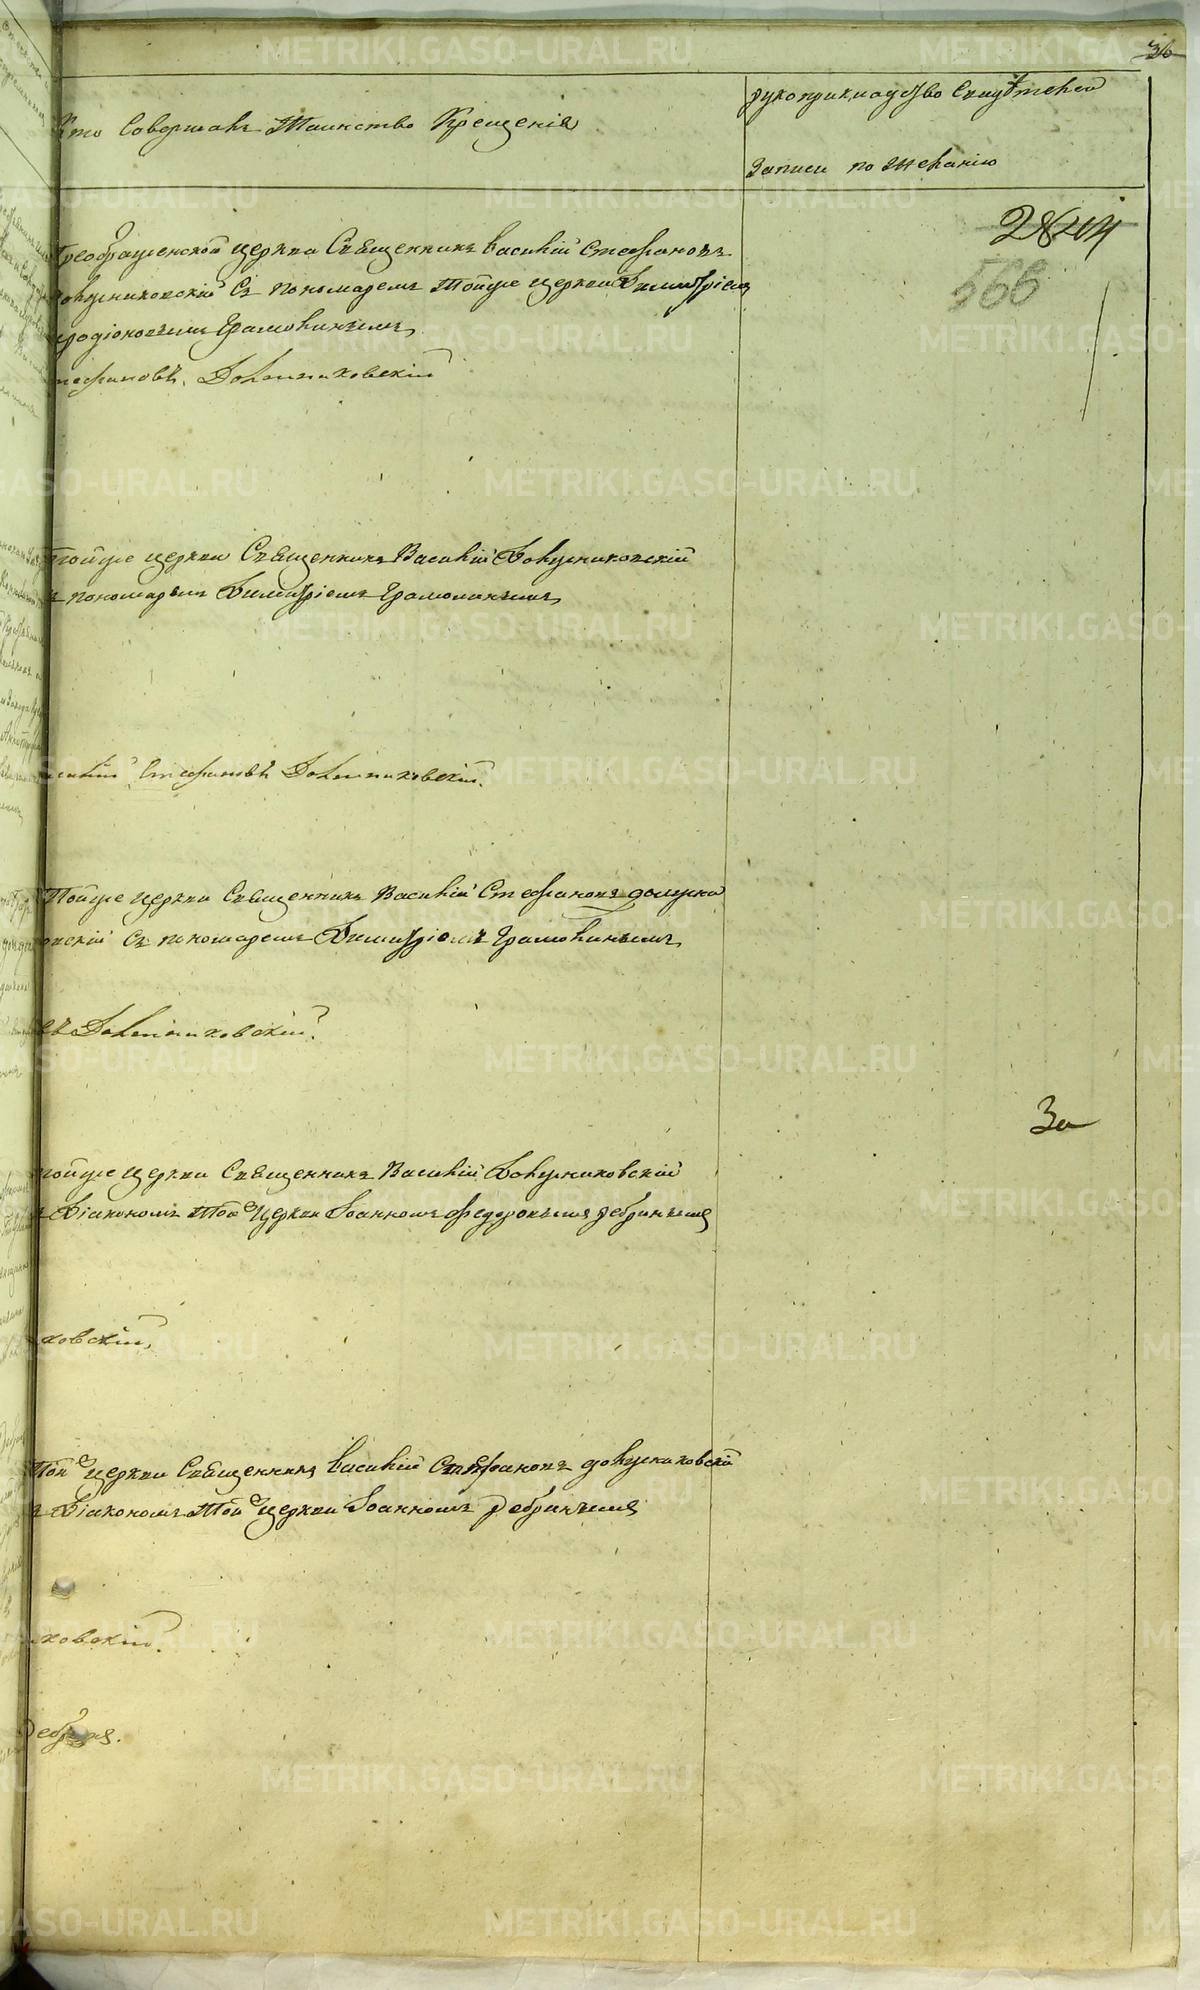 36
Кто Совершалъ Таинство Крещенія
рукоприкладство Свидѣтелей
Записи по Желанію
2844
566
Преображенской церкви Священникъ Василій Стефановъ
Долушниковскій Съ пономаремъ Тойже церкви Димитріемъ
Иродіоновымъ Грамолинымъ
тефановъ, Долушниковскій
Тойже церкви Священникъ Василій Долушниковскій
ъ пономаремъ Димитріемъ Грамолинымъ
асилій Стефановъ Долушниковскій.
Тойже церкви Священникъ Василій Стефановъ долушни
ковскій Съ пономаремъ Димитріемъ Грамолинымъ
въ Долушниковскій.
За
тойже церкви Священникъ Василій Долушниковскій
ъ Діякономъ Той церкви Іоанномъ Федоровымъ Ребринымъ
ковскій,
Той церкви Священникъ Василій Стефановъ долушниковскій
ъ Діякономъ Той церкви Іоанномъ Ребринымъ
ковскій.
METRIKI.GASO-URAL.RU